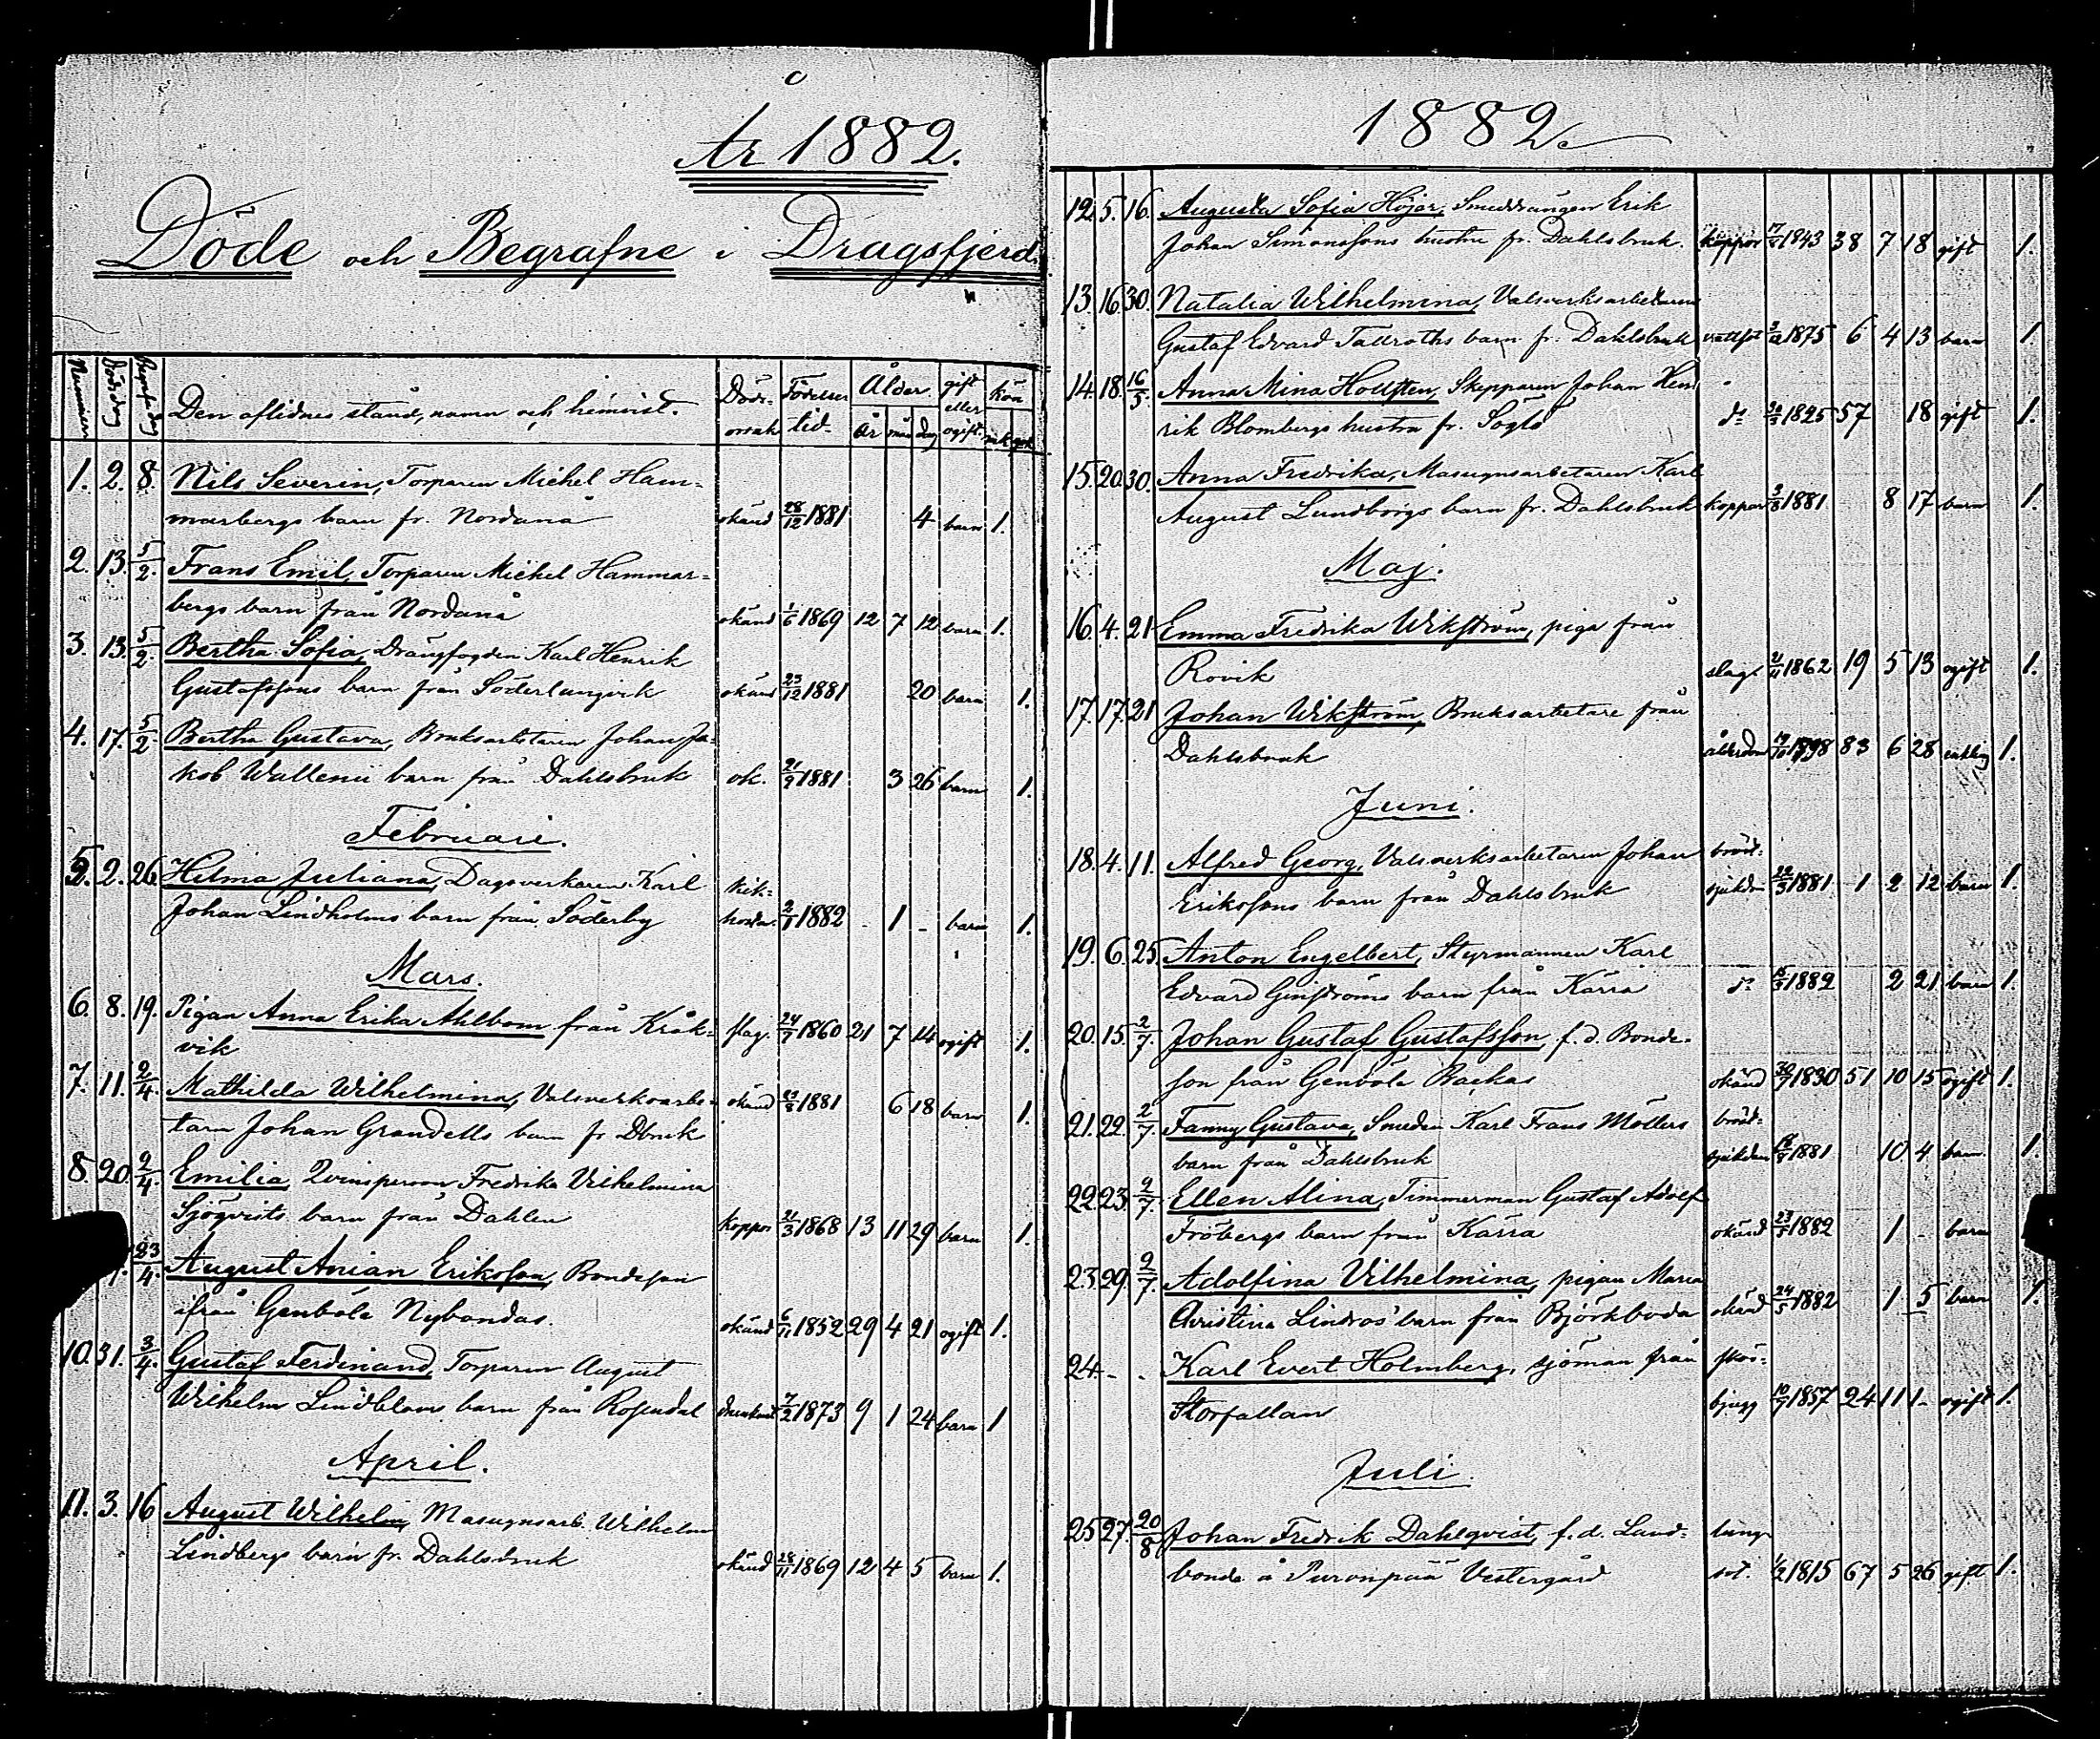 År 1882.
Döde och Begrafne i Dragsfjerd.
Nummer Dödsdag Begrafn. dag Den aflidnes stånd, namn och hemvist. Döds-orsak Födelse tid. Ålder. år mån dag gift eller ogift. Kön mk qvk
1. 2. 8. Nils Severin, Torparen Michel Ham-
marbergs barn fr. Nordanå okänd 28/12 1881 4 barn 1.
2. 13. 5/2. Frans Emil, Torparen Michel Hammar-
bergs barn från Nordanå okänd 1/6 1869 12 7 12 barn 1.
3. 13. 5/2. Bertha Sofia, Drängfogden Karl Henrik
Gustafssons barn från Söderlangvik okänd 23/12 1881 20 barn 1.
4. 17. 5/2. Bertha Gustava, Bruksarbetaren Johan Ja-
kob Wallenii barn från Dahlsbruk ok. 21/9 1881 3 26 barn 1.
Februari.
5. 2. 26. Hilma Juliana, Dagsverkaren Karl kik-
Johan Lindholms barn från Söderby hosta. 2/1 1882 - 1 - barn 1.
Mars.
6. 8. 19. Pigan Anna Erika Ahlbom från Kråk- slag. 24/7 1860 21 7 14 ogift 1.
vik
7. 11. 2/4. Mathilda Wilhelmina, Valsverksarbe- okänd 23/8 1881 6 18 barn 1.
taren Johan Grandells barn fr Dbruk
8. 20. 2/4. Emilia, Qvinsperson Fredrika Vilhelmina
Sjöqvists barn från Dahlen koppor 21/3 1868 13 11 29 barn 1.
23/4. August Anian Eriksson, Bondeson
ifrån Genböle Nybondas. okänd 6/11 1852 29 4 21 ogift 1.
10. 31. 3/4. Gustaf Ferdinand, Torparen August
Wilhelm Lindbloms barn från Rosendal drunknat 7/2 1873 9 1 24 barn 1
April.
11. 3. 16 August Wilhelm, Masugnsarb. Wilhelm
Lindbergs barn fr. Dahlsbruk okänd 28/11 1869 12 4 5 barn 1.
1882.
12. 5. 16. Augusta Sofia Höjer, Smeddrängen Erik
Johan Simonssons hustru fr. Dahlsbruk. koppor 1843 38 7 18 gift 1.
13. 16. 30. Natalia Wilhelmina, Valsverksarbetaren
Gustaf Edvard Tallroths barn fr. Dahlsbruk vattsot 3/12 1875 6 4 13 barn 1.
14. 18. 16/5. Anna Mina Hollsten, Skepparen Johan Hen
rik Blombergs hustru fr. Söglö d:o 1825 57 18 gift 1.
15. 20. 30. Anna Fredrika, Masugnsarbetaren Karl
August Lundborgs barn fr. Dahlsbruk koppor 3/8 1881 8 17 barn 1.
Maj.
16. 4. 21 Emma Fredrika Wikström, piga från
Rovik slag. 21/11 1862 19 5 13 ogift 1.
17. 17. 21 Johan Wikström, Bruksarbetare från
Dahlsbruk ålderdom 19/10 1798 83 6 28 enkling 1.
Juni.
18. 4. 11. Alfred Georg, Valsverksarbetaren Johan bröst-
Erikssons barn från Dahlsbruk sjukdm 22/3 1881 1 2 12 barn 1.
19. 6. 25. Anton Engelbert, Styrmannen Karl
Edvard Ginströms barn från Kärra d:o 1882 2 21 barn 1.
20. 15. 2/7. Johan Gustaf Gustafsson, f. d. Bonde-
son från Genböle Backas okänd 30/7 1830 51 10 15 ogift 1.
21. 22. 2/7. Fanny Gustava, Smeden Karl Frans Möllers bröst-
barn från Dahlsbruk sjukdm 18/8 1881 10 4 barn 1.
22. 23. 2/7. Ellen Alina, Timmerman Gustaf Adolf
Fröbergs barn från Kärra okänd 23/5 1882 1 - barn
23. 29. 2/7. Adolfina Vilhelmina, pigan Maria
Christina Lindros' barn från Björkboda okänd 24/5 1882 1 5 barn 1.
24 - . Karl Evert Holmberg, sjöman från skör-
Storfallan bjugg 10/7 1857 24 11 1 - ogift 1.
Juli.
25. 27. 20/8 Johan Fredrik Dahlqvist, f. d. Land- lung-
bonde å Purunpää Vestergård sot. 1/2 1815 67 5 26 gift 1.